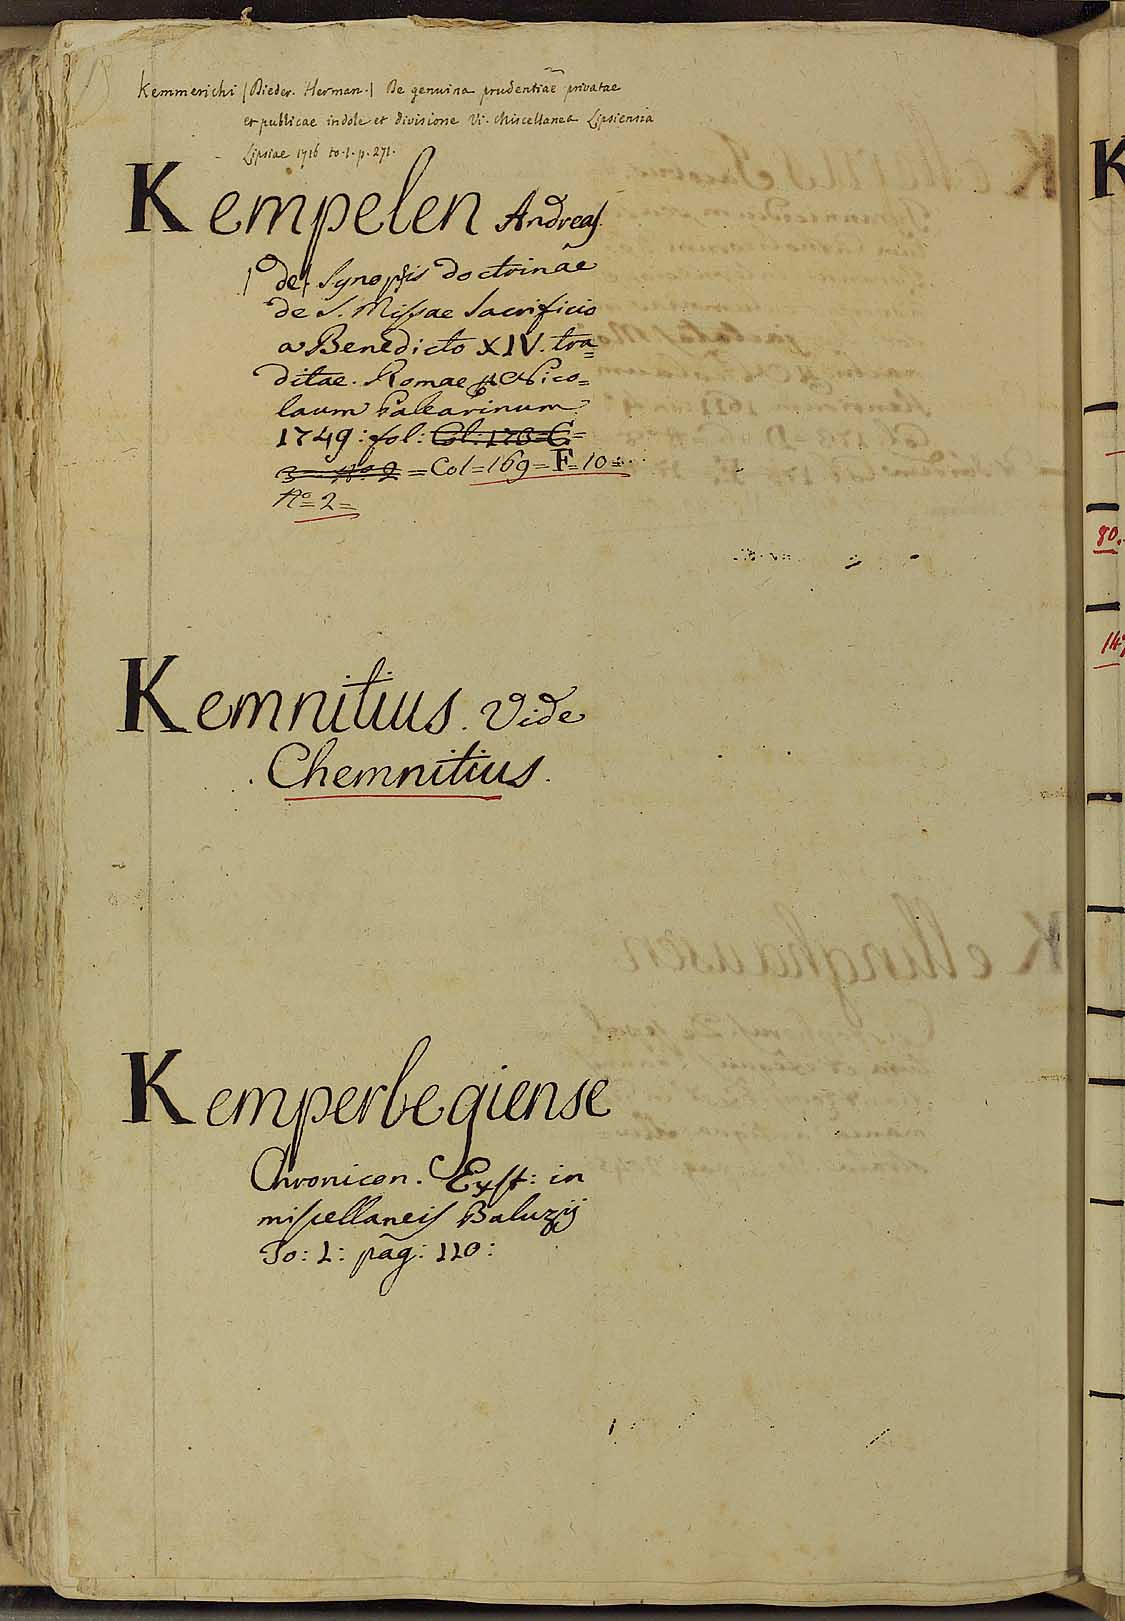 Kemmerichi (Dieder. Herman.) De genuina prudentiae privatae
et publicae indole et divisione Vi. Miscellanea Lipsiensia
Lipsiae 1716 to. 1. p. 271.
Kempelen Andreas
(de) Synopsis doctrinae
de S. Missae Sacrificio
a Benedicto XIV. tra=
ditae. Romae Nico=
laum Palearinum
1749: fol: Col: 178 = C =
3 = No. 2 = Col = 169 = F = 10 =
No = 2 =
Kemnitius. Vide
Chemnitius.
Kemperlegiense
Chronicon. Exst: in
miscellaneis Baluzij
To: 1: pag: 110:
K
80.